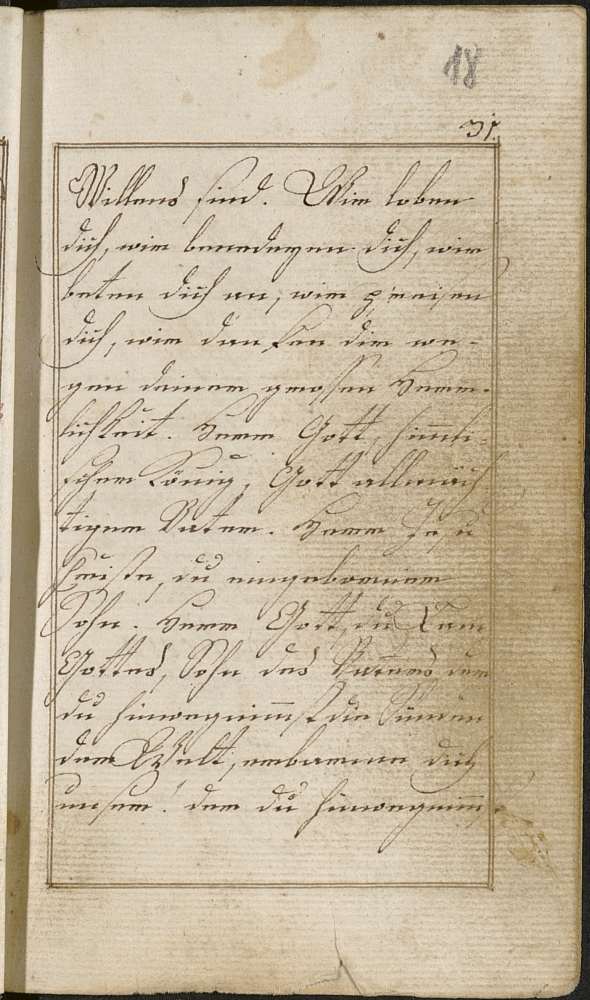 18
31.
Willens sind. Wir loben
dich, wir benedeyen dich, wir
beten dich an, wir preisen
dich, wir danken dir we-
gen deiner grossen Herr-
lichkeit. Herr Gott, himli-
scher König, Gott allmäch
tiger Vater. Herr Jesu
Christe, du eingeborner
Sohn. Herr Gott, du Lam
Gottes, Sohn des Vaters, der
du hinwegnimst die Sünden
der Welt, erbarme dich
unser! der du hinwegnim